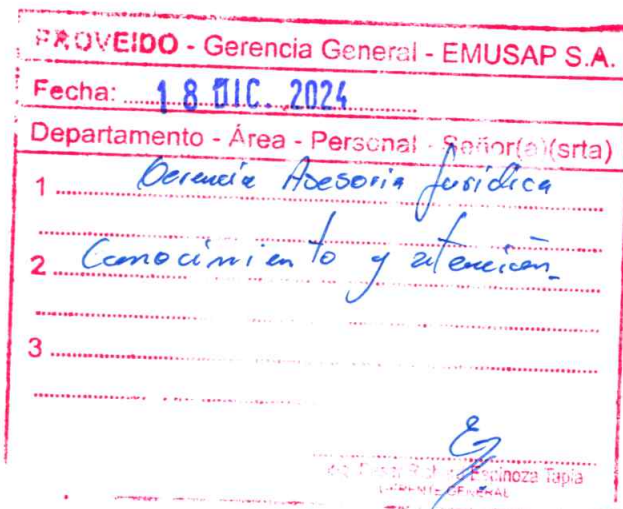 PROVEIDO - Gerencia General - EMUSAP S.A.
Fecha: 18 DIC. 2024
Departamento - Área - Personal - Señor(a)(srta)
1 Gerencia Asesoria Juridica
2 Conocimiento y atención
3
Espinoza Tapia
GERENTE GENERAL